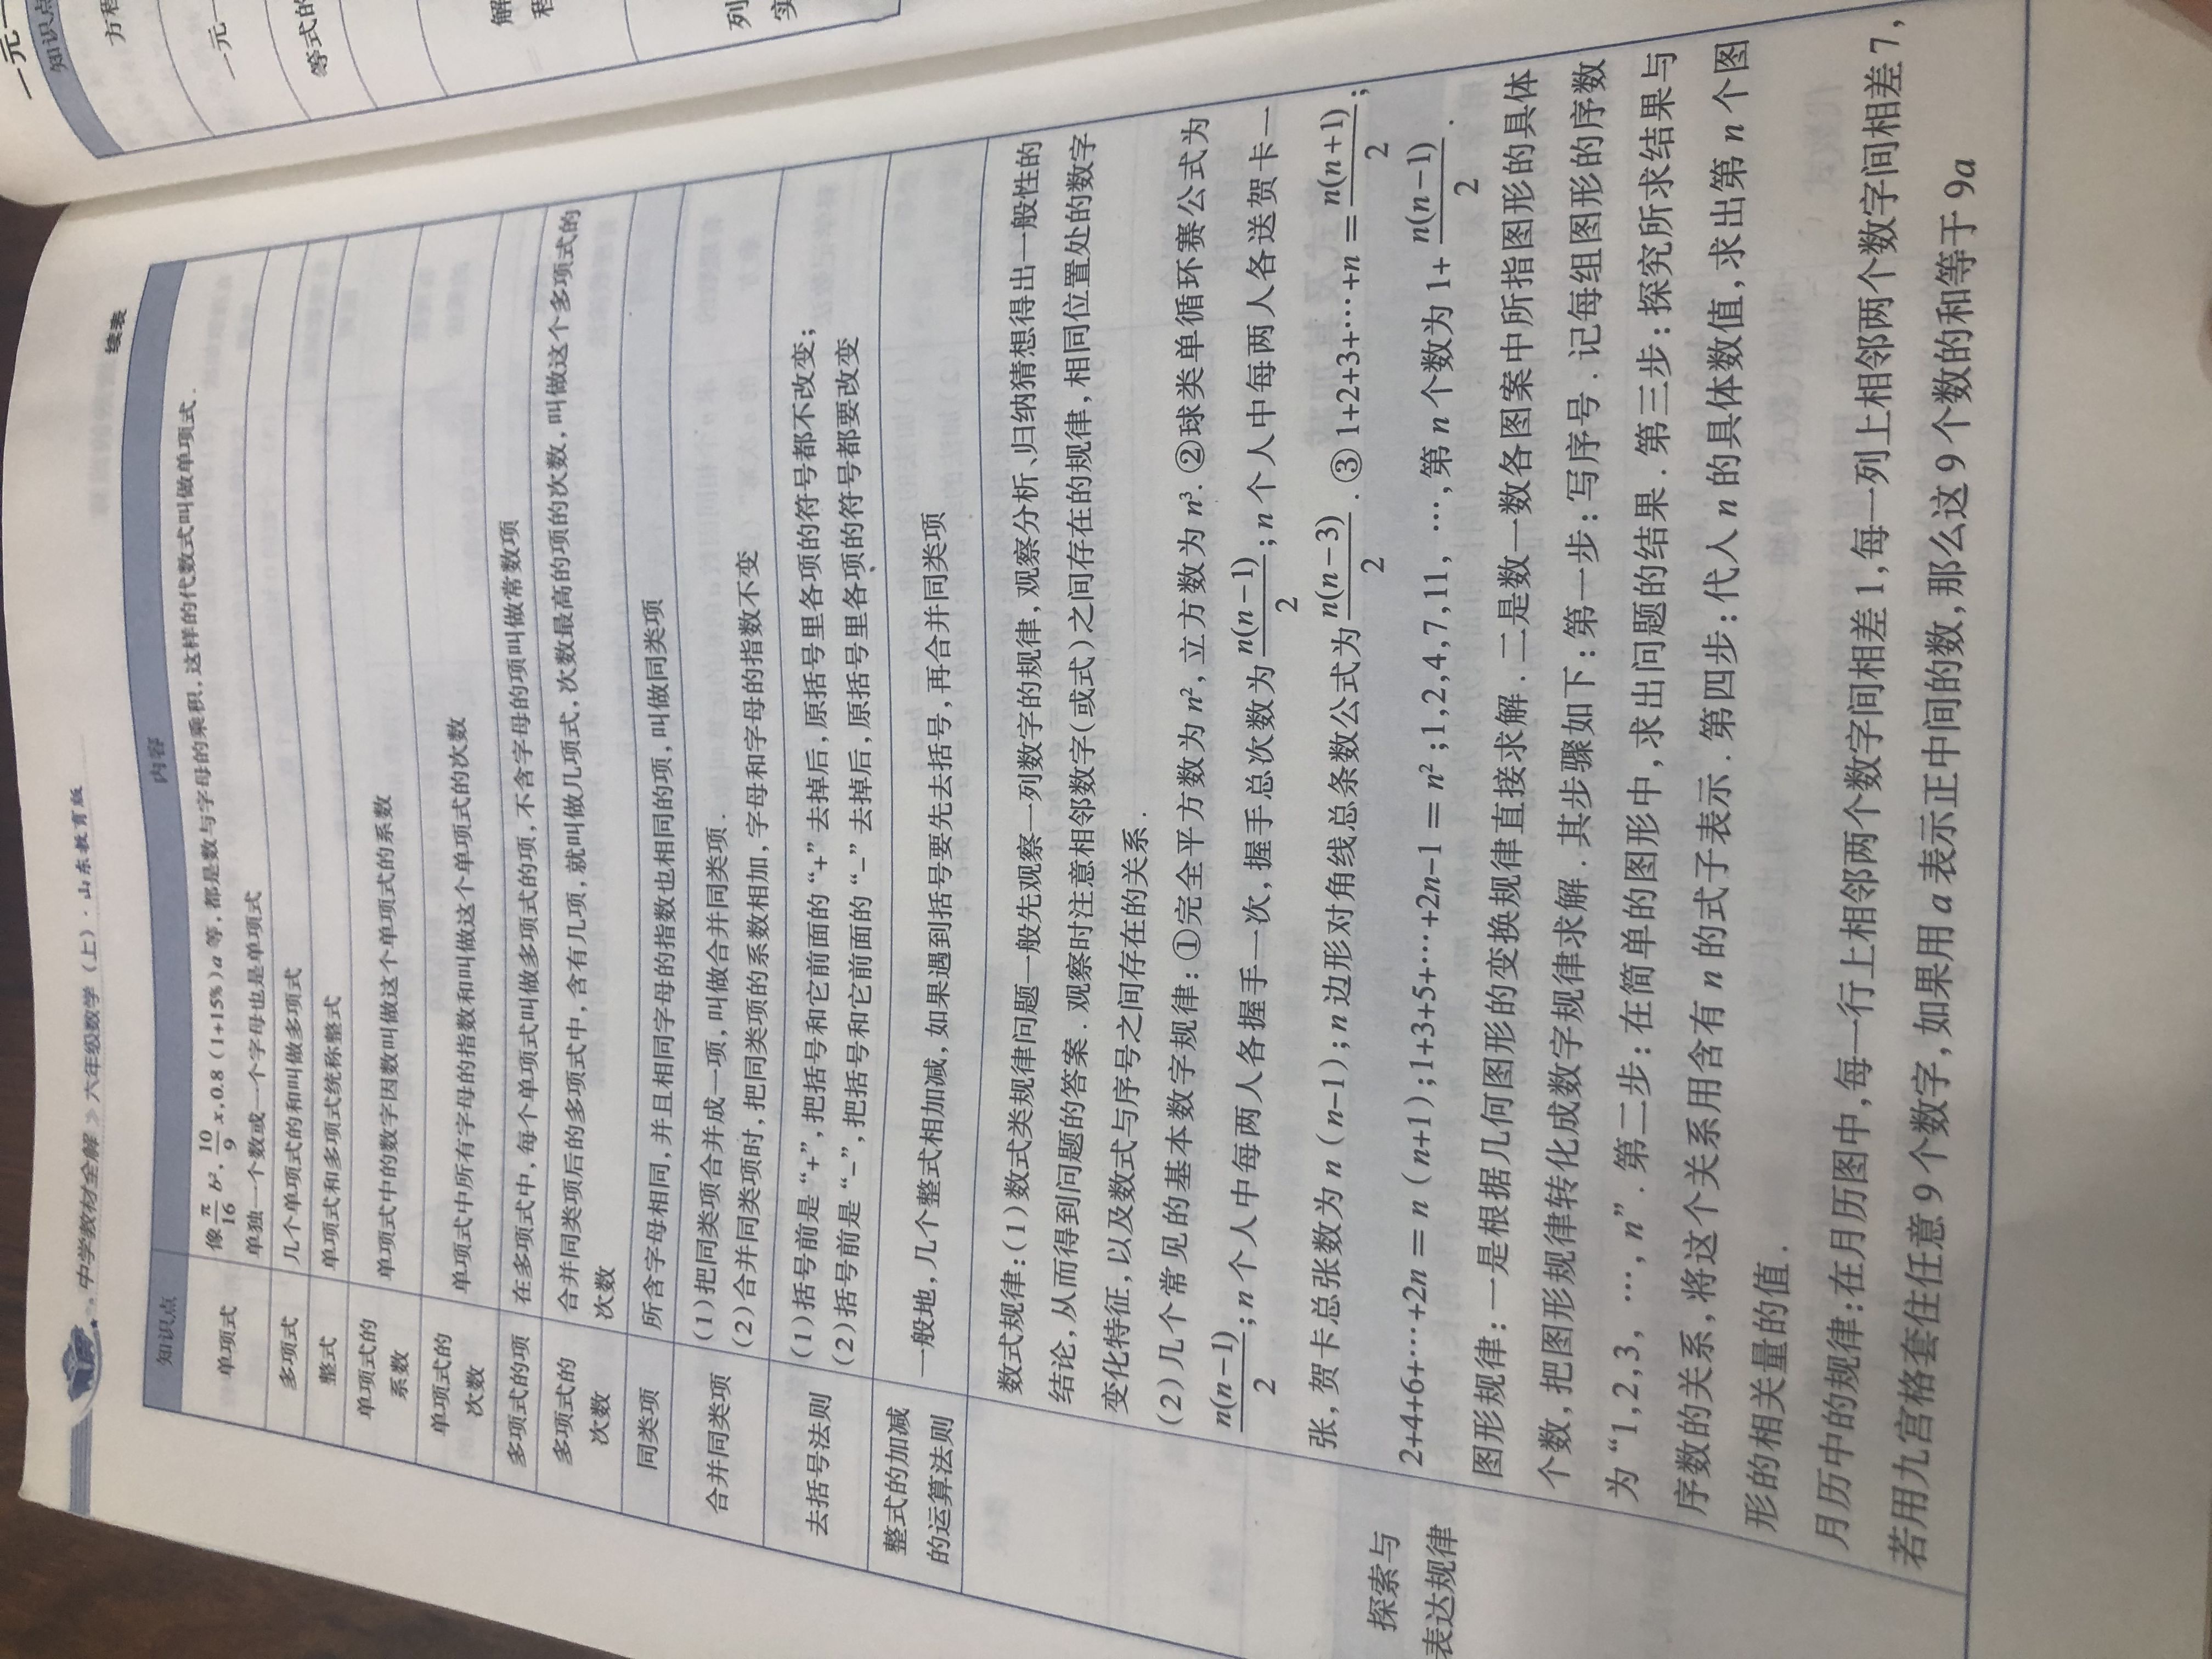 中学教材全解 六年级数学(上)·山东教育版
续表
知识点 内容
单项式
像π/16 b²,10/9 x,0.8(1+15%)a等,都是数与字母的乘积,这样的代数式叫做单项式.
单独一个数或一个字母也是单项式
多项式 几个单项式的和叫做多项式
整式 单项式和多项式统称整式
单项式的
系数
单项式中的数字因数叫做这个单项式的系数
单项式的
次数
单项式中所有字母的指数和叫做这个单项式的次数
多项式的项 在多项式中,每个单项式叫做多项式的项,不含字母的项叫做常数项
多项式的
次数
合并同类项后的多项式中,含有几项,就叫做几项式,次数最高的项的次数,叫做这个多项式的
次数
同类项 所含字母相同,并且相同字母的指数也相同的项,叫做同类项
合并同类项
(1)把同类项合并成一项,叫做合并同类项.
(2)合并同类项时,把同类项的系数相加,字母和字母的指数不变
去括号法则
(1)括号前是“+”,把括号和它前面的“+”去掉后,原括号里各项的符号都不改变;
(2)括号前是“-”,把括号和它前面的“-”去掉后,原括号里各项的符号都要改变
整式的加减
的运算法则
一般地,几个整式相加减,如果遇到括号要先去括号,再合并同类项
探索与
表达规律
数式规律:(1)数式类规律问题一般先观察一列数字的规律,观察分析、归纳猜想得出一般性的
结论,从而得到问题的答案.观察时注意相邻数字(或式)之间存在的规律,相同位置处的数字
变化特征,以及数式与序号之间存在的关系.
(2)几个常见的基本数字规律:①完全平方数为n²,立方数为n³.②球类单循环赛公式为
n(n-1)/2;n个人中每两人各握手一次,握手总次数为n(n-1)/2;n个人中每两人各送贺卡一
张,贺卡总张数为n(n-1);n边形对角线总条数公式为n(n-3)/2.③1+2+3+…+n=n(n+1)/2;
2+4+6+…+2n=n(n+1);1+3+5+…+2n-1=n²;1,2,4,7,11,…,第n个数为1+n(n-1)/2.
图形规律:一是根据几何图形的变换规律直接求解.二是数一数各图案中所指图形的具体
个数,把图形规律转化成数字规律求解.其步骤如下:第一步:写序号.记每组图形的序数
为“1,2,3,…,n”.第二步:在简单的图形中,求出问题的结果.第三步:探究所求结果与
序数的关系,将这个关系用含有n的式子表示.第四步:代入n的具体数值,求出第n个图
形的相关量的值.
月历中的规律:在月历图中,每一行上相邻两个数字间相差1,每一列上相邻两个数字间相差7,
若用九宫格套住任意9个数字,如果用a表示正中间的数,那么这9个数的和等于9a
一元一
知识点
方程
一元一
等式的
解
程
列
实